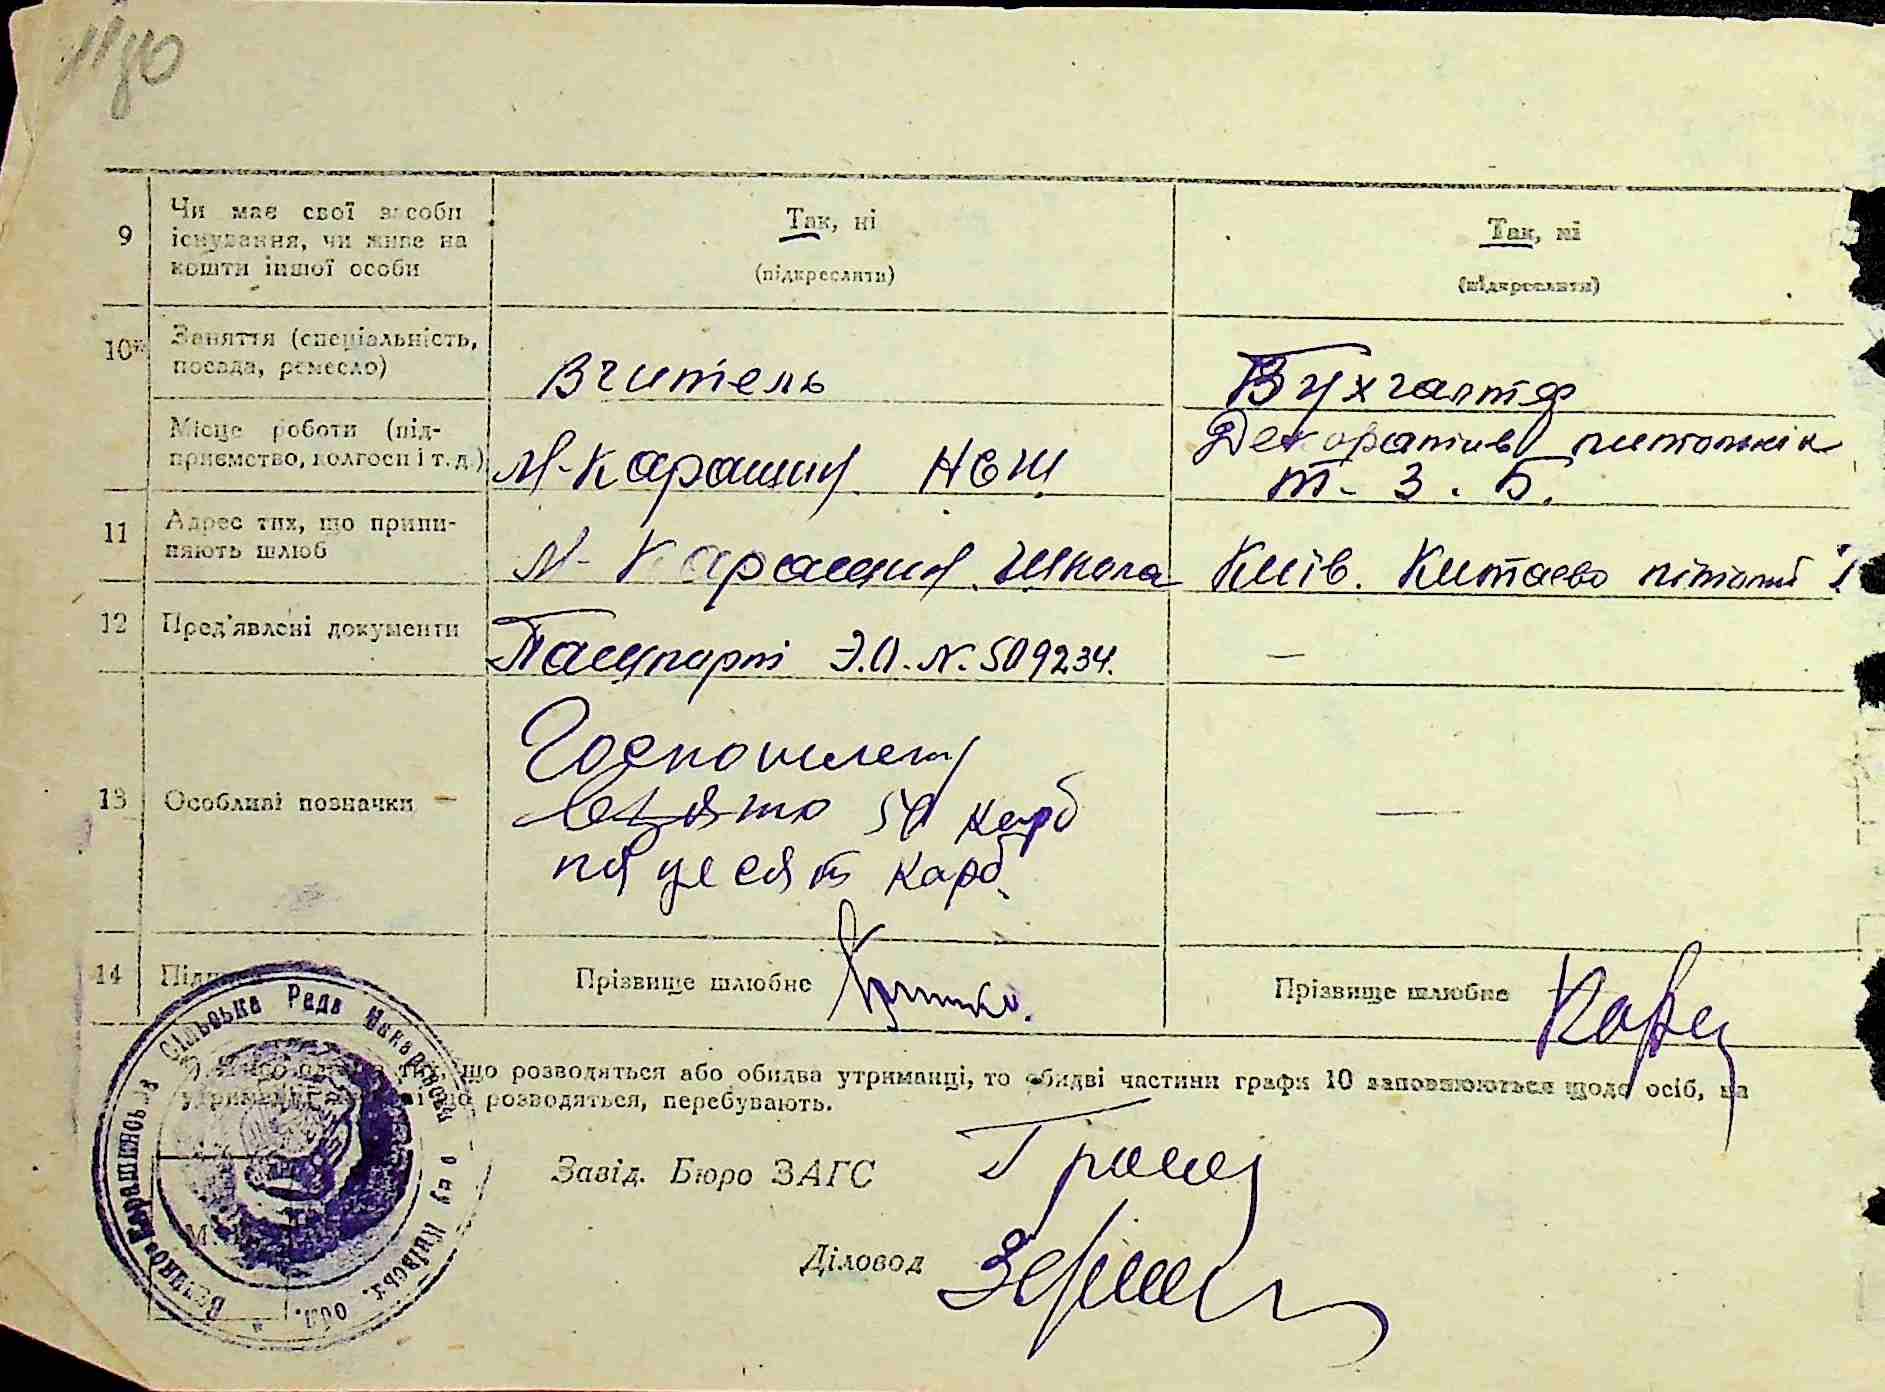 9
Чи має свої засоби
існування, чи живе на
кошти іншої особи
Так, ні
(підкреслити)
Так, ні
(підкреслити)
10*
Заняття (спеціальність,
посада, ремесло)
Вчитель
Бухгалтер
Місце роботи (під-
приємство, колгосп і т. д.)
М-Карашин НСШ
Декоратив питомнік
т. З. Б.
11
Адрес тих, що припи-
няють шлюб
М-Карашин Школа
Київ. Китаєво
12
Пред'явлені документи
Пашпорт Э.О. N. 509234.
—
13
Особливі позначки
Госпошлену
взято 50 карб
пядесят карб.
—
14
Прізвище шлюбне
Прізвище шлюбне
тих, що розводяться або обидва утриманці, то обидві частини графи 10 заповнюються щодо осіб, на
розводяться, перебувають.
Завід. Бюро ЗАГС
Діловод
Велико-Карашинська Сільська Рада Макарівськ р-ну Київськ. обл.